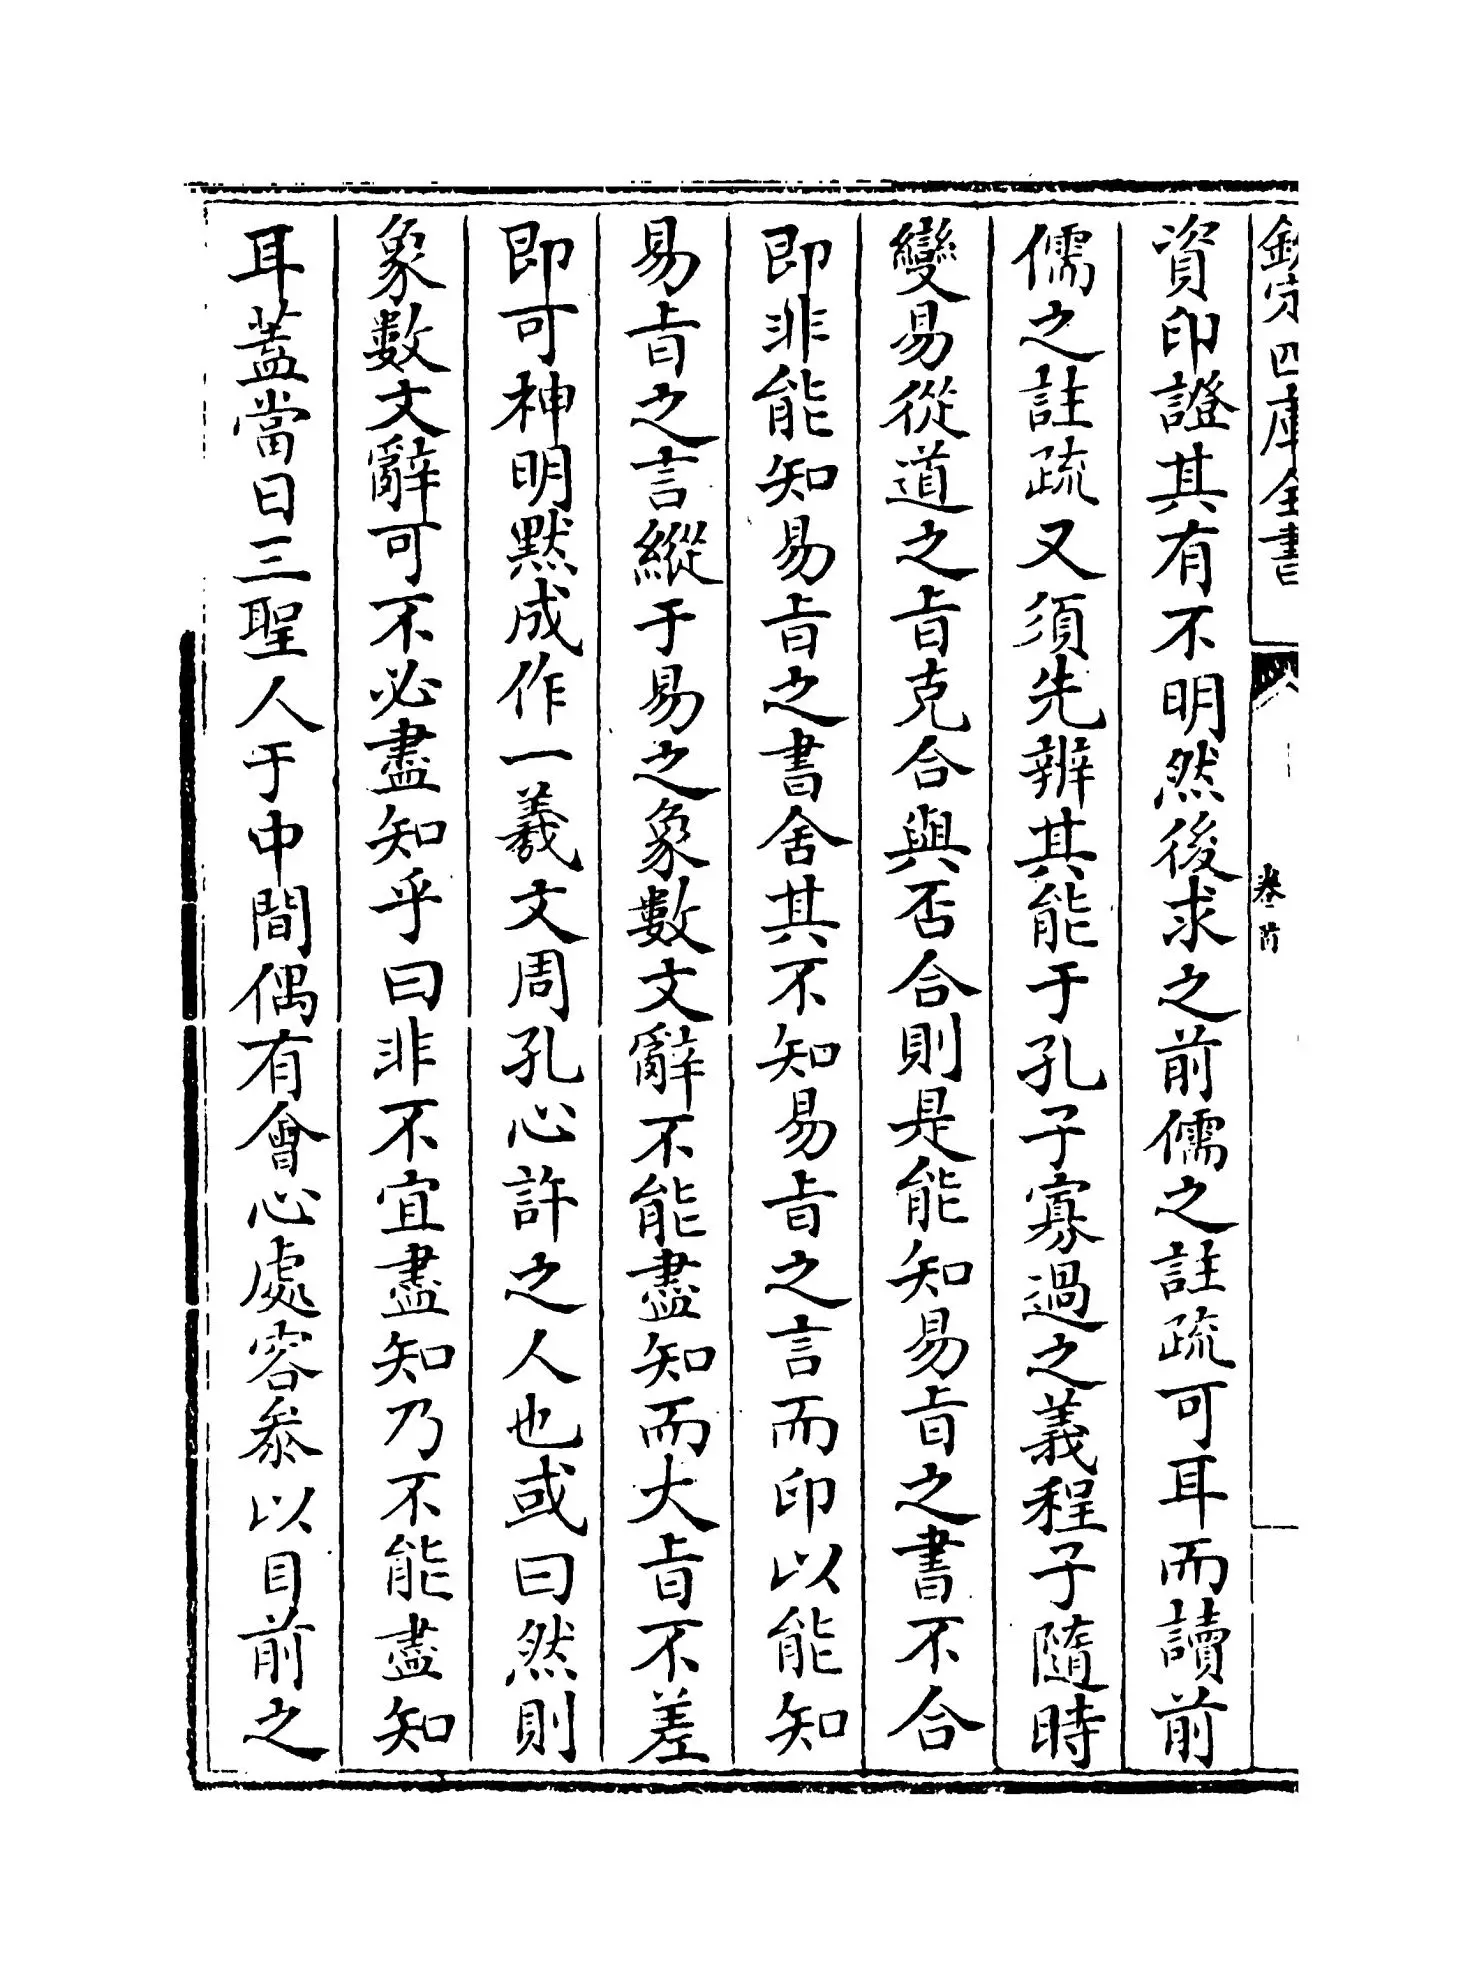 欽定四庫全書
卷首
資印證其有不明然後求之前儒之註疏可耳而讀前
儒之註疏又須先辨其能于孔子寡過之義程子隨時
變易從道之㫖克合與否合則是能知易㫖之書不合
即非能知易㫖之書舍其不知易㫖之言而印以能知
易㫖之言縱于易之象數文辭不能盡知而大㫖不差
即可神明黙成作一羲文周孔心許之人也或曰然則
象數文辭可不必盡知乎曰非不宜盡知乃不能盡知
耳葢當日三聖人于中間偶有會心處容叅以目前之